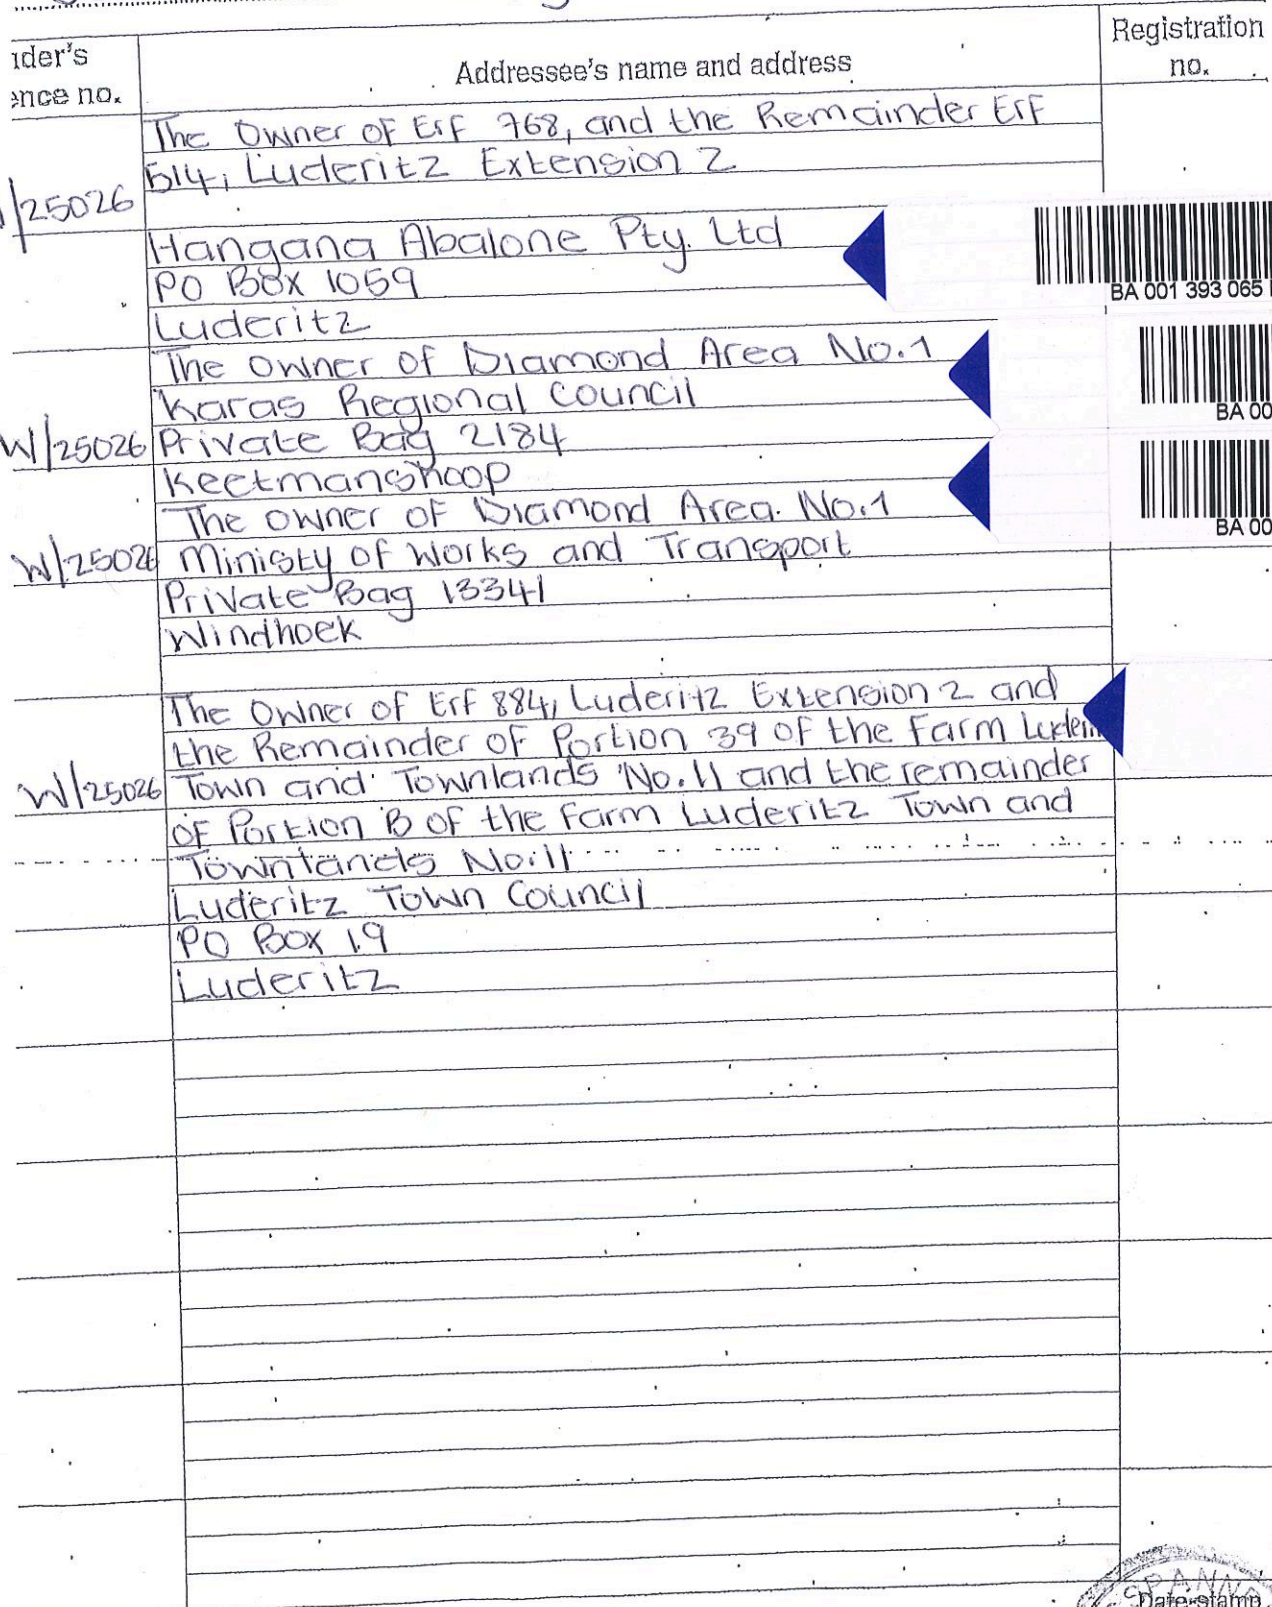 ider's
ence no.
Addressee's name and address
Registration
no.
The Owner of Erf 768, and the Remainder Erf
514, Luderitz Extension 2
/25026
Hangana Abalone Pty. Ltd
PO Box 1059
Luderitz
BA 001 393 065
The Owner of Diamond Area No.1
Karas Regional Council
W/25026 Private Bag 2184
Keetmanshoop
BA 00
The Owner of Diamond Area. No.1
W/25026 Ministy of Works and Transport
Private Bag 13341
Windhoek
BA 00
The Owner of Erf 884, Luderitz Extension 2 and
the Remainder of Portion 39 of the Farm Luderi
W/25026 Town and Townlands No.11 and the remainder
of Portion B of the Farm Luderitz Town and
Townlands No.11
Luderitz Town Council
PO Box 19
Luderitz
SPANN
Date-stamp